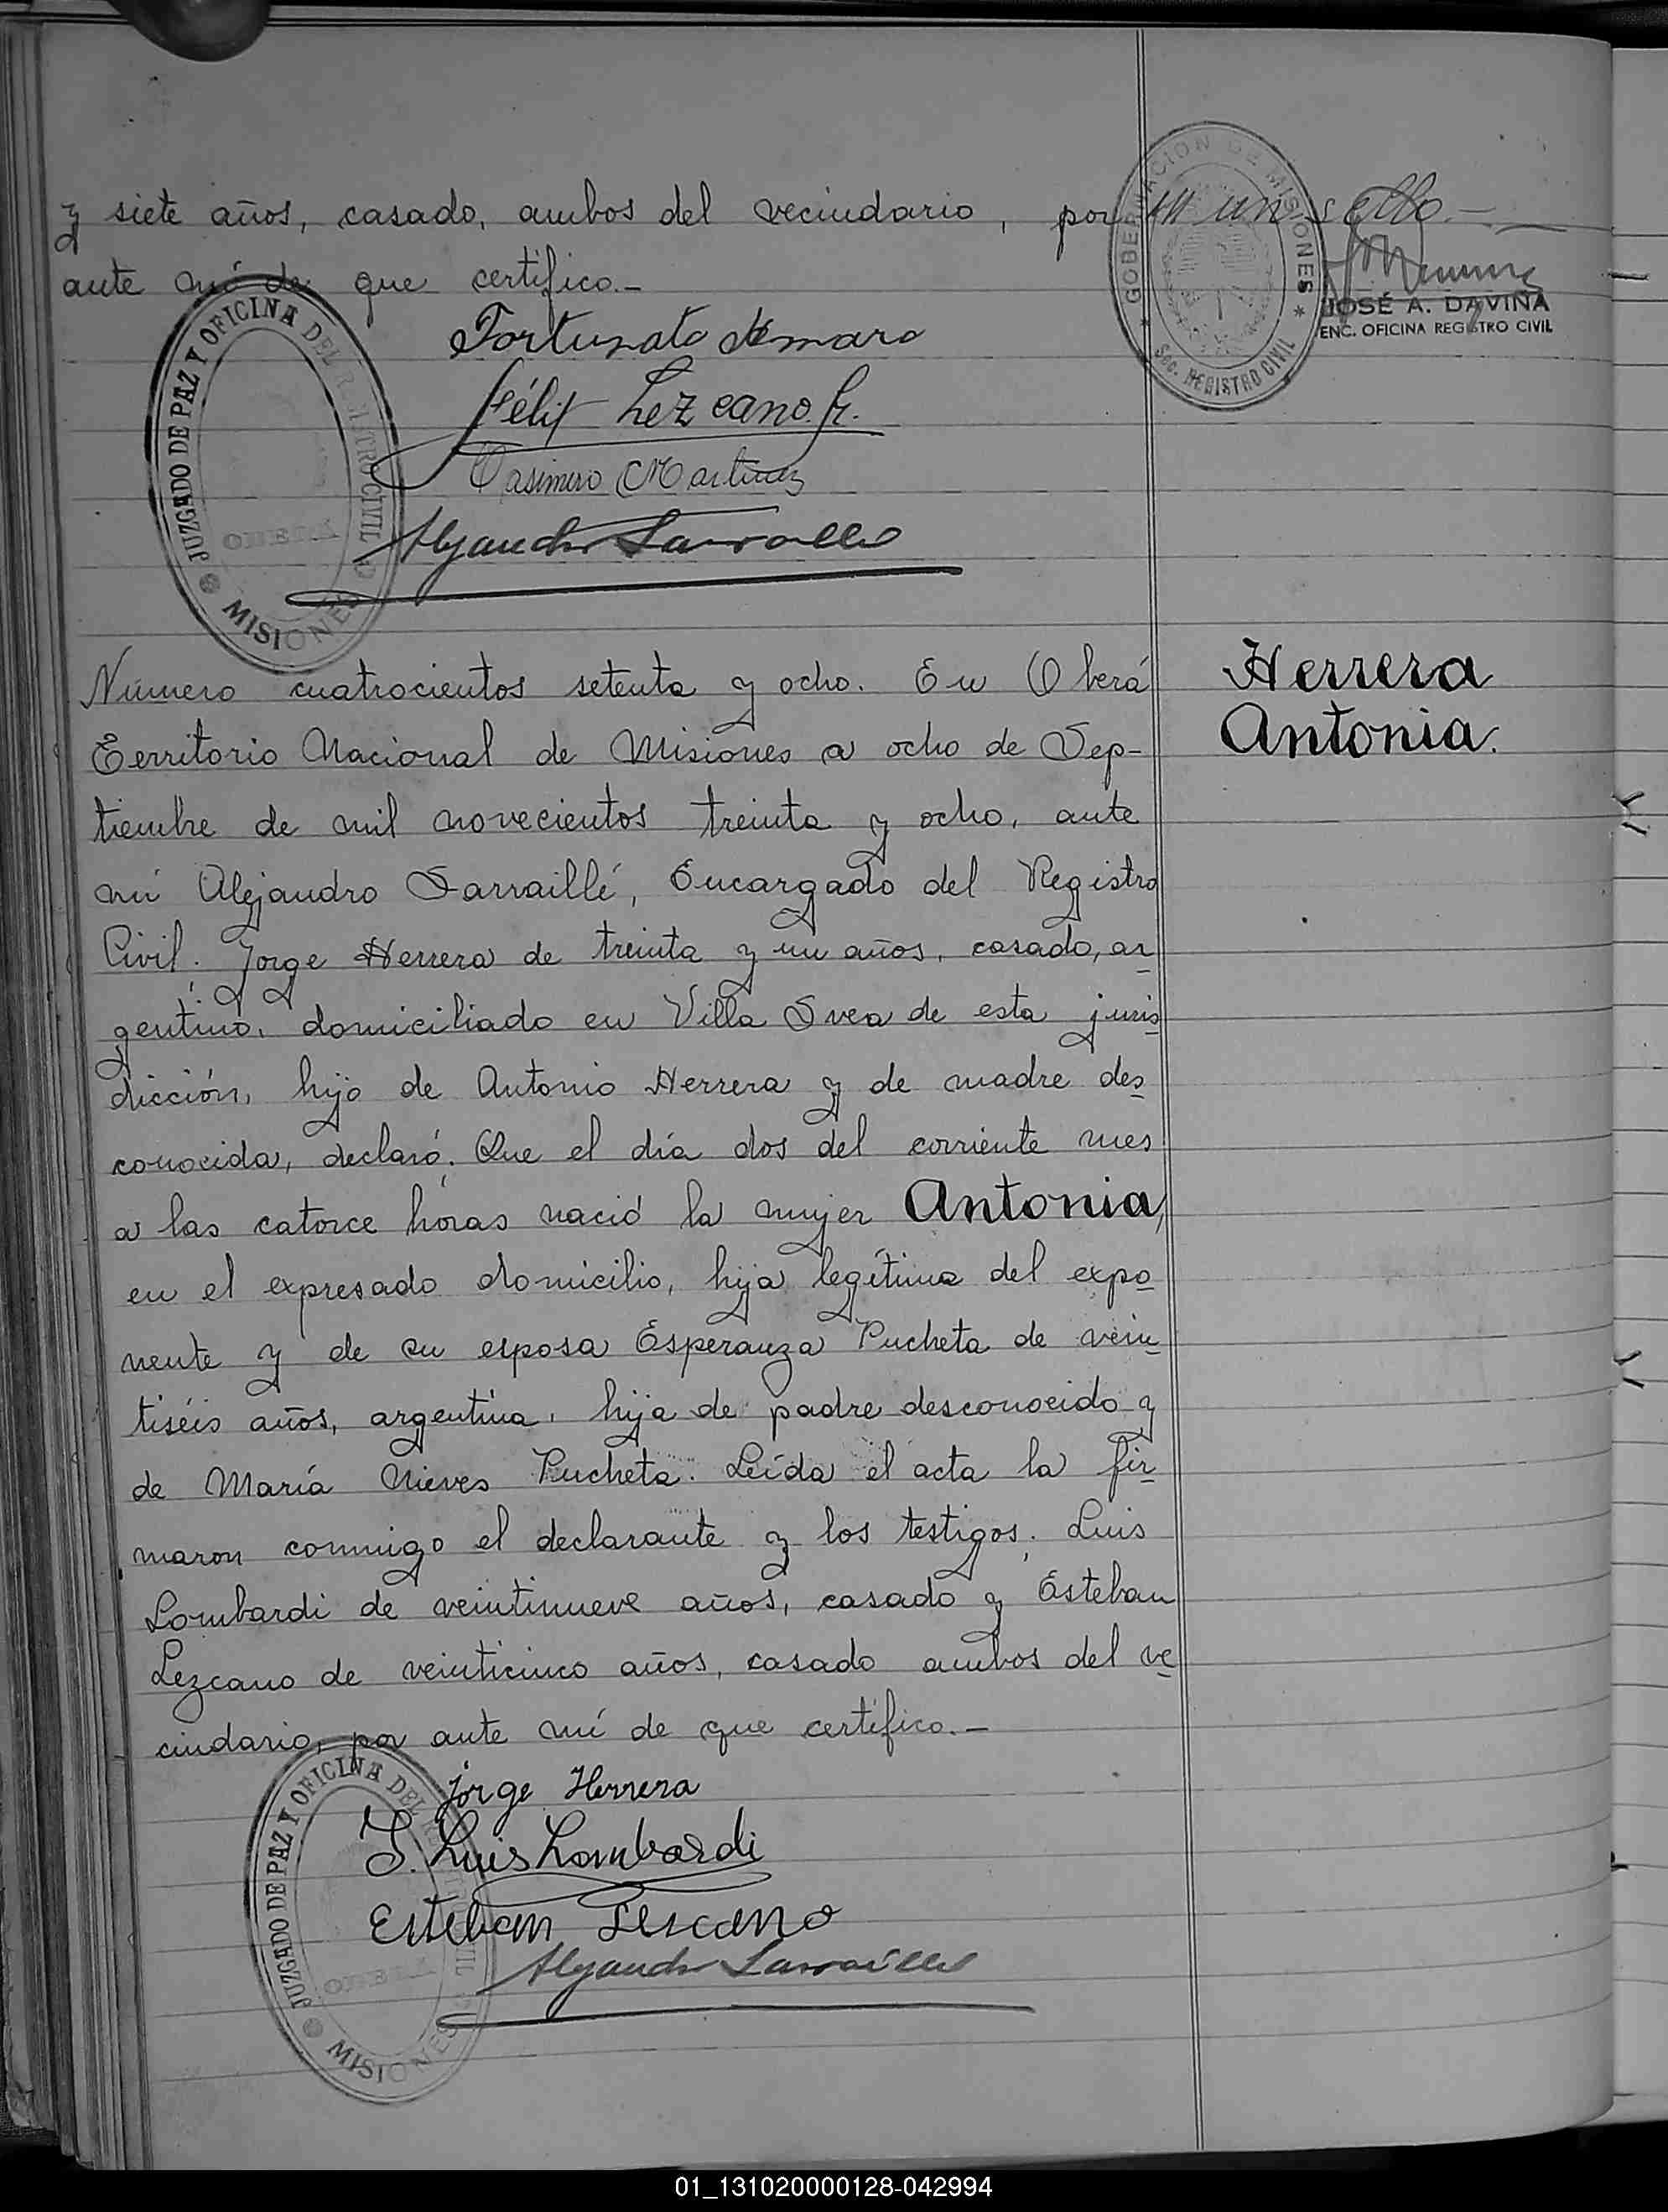 y siete años, casado, ambos del vecindario, por
ante mí de que certifico.-
un sello.-
GOBERNACION DE MISIONES
SEC. REGISTRO CIVIL
JOSÉ A. DAVIÑA
ENC. OFICINA REGISTRO CIVIL
JUZGADO DE PAZ Y OFICINA DEL REGISTRO CIVIL
OBERA
MISIONES
Fortunato
Félix Lezcano
Casimiro Martinez
Alejandro Sarraillé
Herrera
Antonia.
Número cuatrocientos setenta y ocho. En Oberá
Territorio Nacional de Misiones a ocho de Sep-
tiembre de mil novecientos treinta y ocho, ante
mí Alejandro Sarraillé, Encargado del Registro
Civil: Jorge Herrera de treinta y un años, casado, ar
gentino, domiciliado en Villa Svea de esta juris
dicción, hijo de Antonio Herrera y de madre des
conocida, declaró: Que el día dos del corriente mes
a las catorce horas nació la mujer Antonia,
en el expresado domicilio, hija legítima del expo
nente y de su esposa Esperanza Pucheta de vein
tiséis años, argentina, hija de padre desconocido y
de María Nieves Pucheta. Leída el acta la fir
maron conmigo el declarante y los testigos: Luis
Lombardi de veintinueve años, casado y Esteban
Lezcano de veinticinco años, casado ambos del ve
cindario, por ante mí de que certifico.-
Jorge Herrera
J. Luis Lombardi
Esteban Lescano
Alejandro Sarraillé
JUZGADO DE PAZ Y OFICINA DEL REGISTRO CIVIL
OBERA
MISIONES
01_131020000128-042994